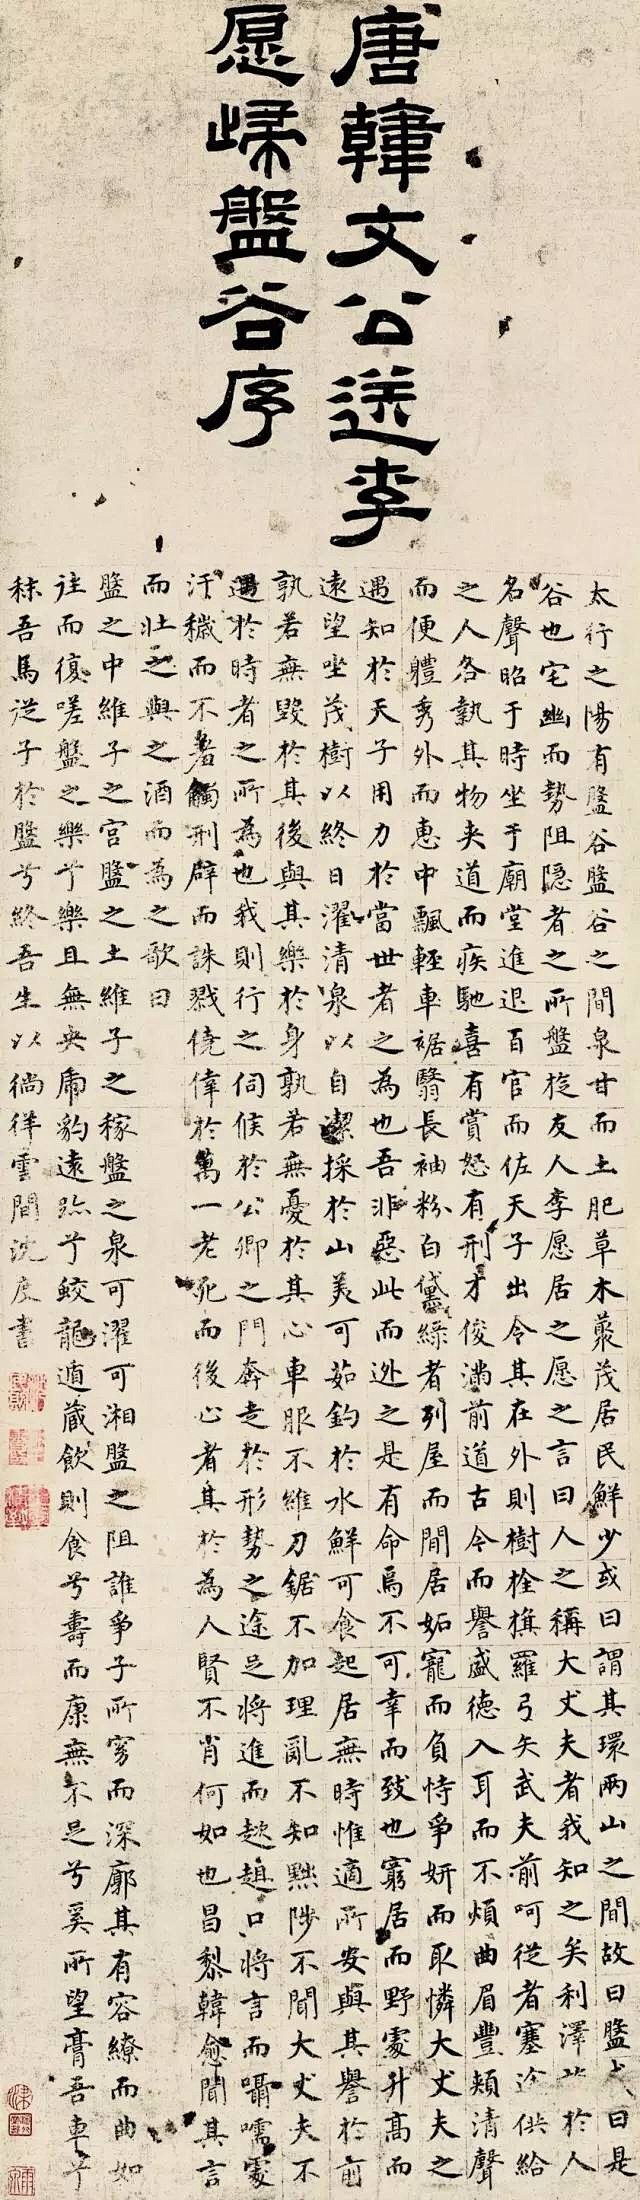 唐韓文公送李
愿歸盤谷序
太行之陽有盤谷盤谷之間泉甘而土肥草木藂茂居民鮮少或曰謂其環兩山之間故曰盤或曰是
谷也宅幽而勢阻隱者之所盤旋友人李愿居之愿之言曰人之稱大丈夫者我知之矣利澤施於人
名聲昭于時坐于廟堂進退百官而佐天子出令其在外則樹栓旗羅弓矢武夫前呵從者塞途供給
之人各執其物夾道而疾馳喜有賞怒有刑才俊滿前道古今而譽盛德入耳而不煩曲眉豐頰清聲
而便體秀外而惠中飄輕車裾翳長袖粉白黛綠者列屋而閒居妬寵而負恃爭妍而取憐大丈夫之
遇知於天子用力於當世者之為也吾非惡此而逃之是有命焉不可幸而致也窮居而野處升高而
遠望坐茂樹以終日濯清泉以自潔採於山美可茹釣於水鮮可食起居無時惟適所安與其譽於前
孰若無毀於其後與其樂於身孰若無憂於其心車服不維刀鋸不加理亂不知黜陟不聞大丈夫不
遇於時者之所為也我則行之伺候於公卿之門奔走於形勢之途足將進而趑趄口將言而囁嚅處
汙穢而不著觸刑辟而誅戮僥倖於萬一老死而後心者其於為人賢不肖何如也昌黎韓愈聞其言
而壯之與之酒而為之歌曰
盤之中維子之宮盤之土維子之稼盤之泉可濯可湘盤之阻誰爭子所窈而深廓其有容繚而曲如
往而復嗟盤之樂兮樂且無央虎豹遠跡兮蛟龍遁藏飲則食兮壽而康無不足兮奚所望膏吾車兮
秣吾馬從子於盤兮終吾生以徜徉雲間沈度書